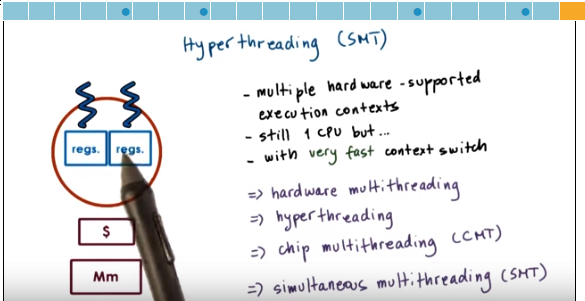 Hyperthreading (SMT)
- multiple hardware-supported
execution contexts
- still 1 CPU but...
- with very fast context switch
regs. regs.
=> hardware multithreading
=> hyperthreading
=> chip multithreading (CMT)
=> simultaneous multithreading (SMT)
$
Mm